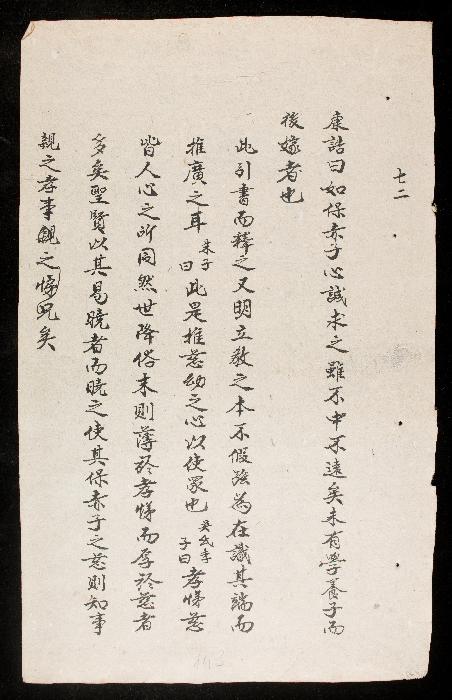 七二
康誥曰如保赤子心誠求之雖不中不遠矣未有學養子而
後嫁者也
此引書而釋之又明立教之本不假强為在識其端而
推廣之耳朱子曰此是推慈幼之心以使眾也吳氏季子曰孝悌慈
皆人心之所同然世降俗末則薄於孝悌而厚於慈者
多矣聖賢以其易曉者而曉之使其保赤子之慈則知事
親之孝事親之悌兄矣